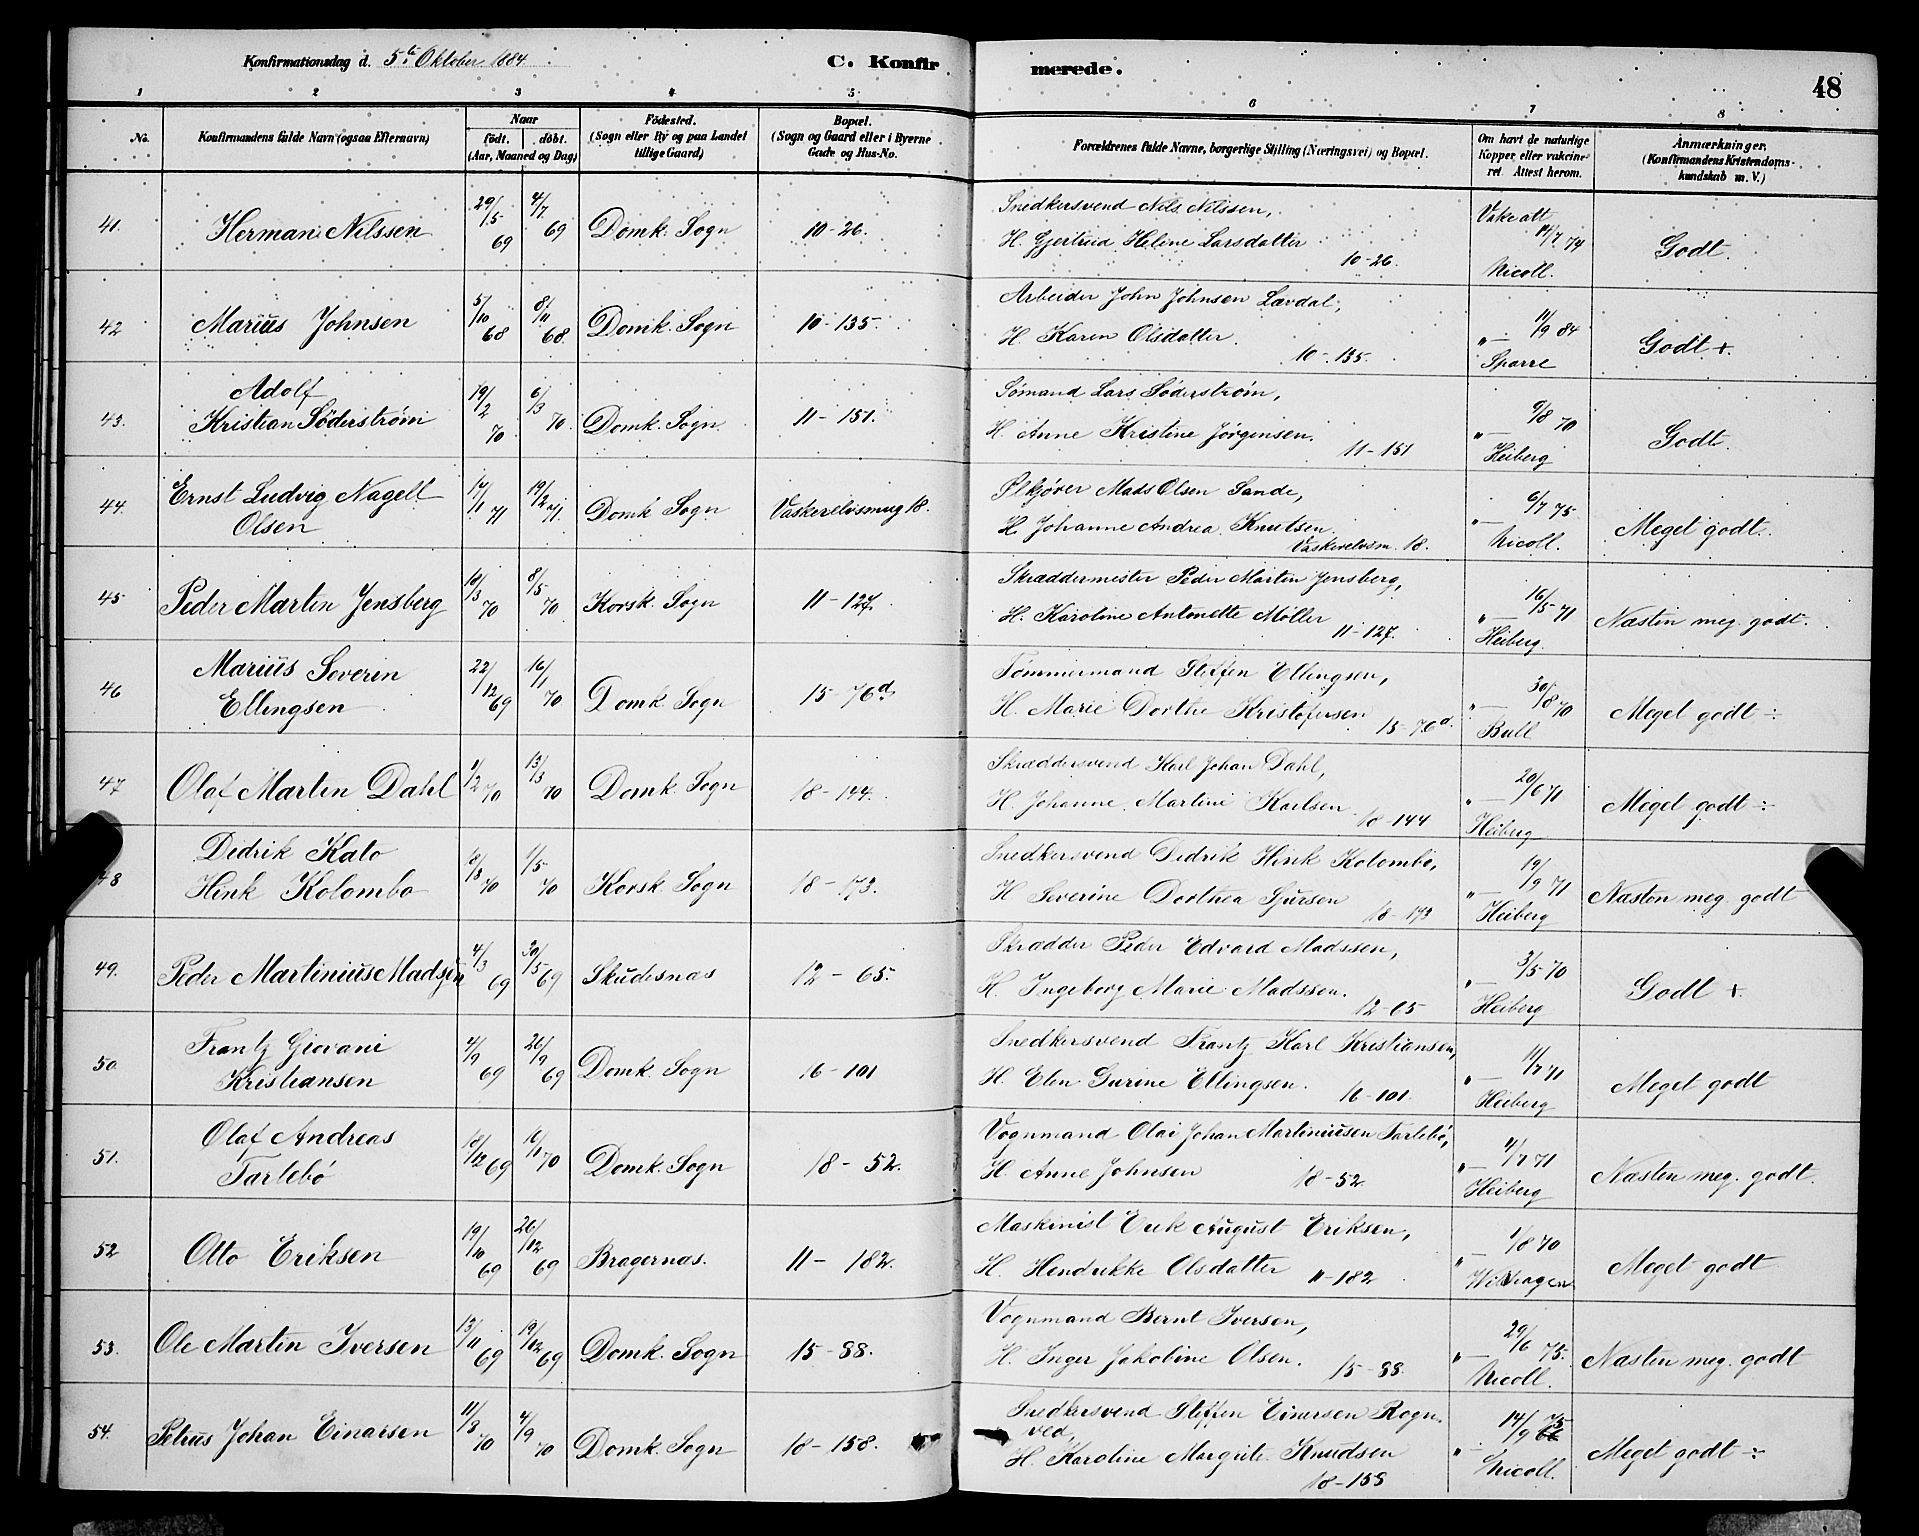 Konfirmationsdag d. 5te Oktober 1884. C. Konfirmerede. 48
1 2 3 4 5 6 7 8
No. Konfirmandens fulde Navn (ogsaa Efternavn) Naar født. døbt. (Aar, Maaned og Dag) Fødested. (Sogn eller By og paa Landet tillige Gaard) Bopæl. (Sogn og Gaard eller i Byerne Gade og Hus-No. Forældrenes fulde Navne, borgerlige Stilling (Næringsvei) og Bopæl. Om havt de naturlige Kopper eller vakcineret Attest herom. Anmærkninger. (Konfirmandens Kristendomskundskab m. V.)
41. Herman Nilssen 29/5 69 4/7 69 Domk. Sogn 10-26. Snedkersvend Nils Nilssen, Vakc att 11/7 74 Godt.
H. Gjertrud Helene Larsdatter 10-26. Nicoll.
42 Marius Johnsen 5/10 68 8/11 68 Domk. Sogn 10-135. Arbeider John Johnsen Lærdal, "— 11/9 84 Godt +.
H. Karen Olsdatter. 10-135. Sparre
43. Adolf
Kristian Søderstrøm 19/2 70 6/3 70. Domk. Sogn 11-151. Sømand Lars Søderstrøm, "— 9/8 70 Godt.
H. Anne Kristine Jørgensen. 11-151 Heiberg
44. Ernst Ludvig Nagell
Olsen 14/1 71 19/2 71. Domk. Sogn Vaskerelvsmug 18. Mads Olsen Sande, "— 6/7 75. Meget godt.
H. Johanne Andrea Knutsen Vaskerelvsm. 18. Nicoll.
45 Peder Martin Jensberg 10/3 70 8/5 70 Korsk. Sogn 11-127. Skræddermester Peder Martin Jensberg, "— 16/5 71 Næsten meg. godt.
H. Karoline Antonette Møller 11-127. Heiberg.
46 Marius Severin
Ellingsen 22/12 69 16/1 70 Domk. Sogn 15-76d. Tømmermand Steffen Ellingsen, "— 30/8 70 Meget godt ÷
H. Marie Dorthe Kristofersen 15-76d. Bull
47 Olaf Martin Dahl 1/2 70 13/3 70 Domk. Sogn 18-144. Skræddersvend Karl Johan Dahl, "— 20/6 71 Meget godt ÷
H. Johanne Martine Karlsen 18-144 Heiberg
48 Dedrik Kato
Hink Kolombo 18/3 70 1/5 70 Korsk. Sogn 18-173. Snedkersvend Didrik Hink Kolombo, "— 19/9 71 Næsten meg. godt
H Severine Dorthea Sjursen 18-173 Heiberg
49. Peder Martinius Madssen 4/3 69 30/5 69 Skudesnæs 12-65. Skrædder Peder Edvard Madssen, "— 3/5 70 Godt +.
H. Ingeborg Marie Madssen. 12-65 Heiberg
50. Frantz Giovani
Kristiansen 4/9 69 26/9 69 Domk. Sogn 16-101 Snedkersvend Frantz Karl Kristiansen, "— 11/7 71 Meget godt
H. Elen Gurine Ellingsen. 16-101. Heiberg
51. Olaf Andreas
Tarlebø 18/12 69 16/1 70 Domk. Sogn 18-52. Vognmand Olai Johan Martiniusen Tarlebø, "— 4/7 71 Næsten meg. godt.
H. Anne Johnsen 18-52. Heiberg
52 Otto Eriksen 19/10 69 26/12 69 Bragernæs. 11-182. Maskinist Erik August Eriksen, "— 1/8 70 Meget godt
H. Hendrikke Olsdatter 11-182
53. Ole Martin Iversen 13/11 69 19/12 69 Domk. Sogn 15-88. Vognmand Bernt Iversen, "— 29/6 75. Næsten meg. godt
H. Inger Jakobine Olsen. 15-88. Nicoll.
54. Petrus Johan Einarsen 11/8 70 4/9 70 Domk. Sogn 18-158. Snedkersvend Steffen Einersen Rogn-
ved, "— 14/9 75 Meget godt ÷
H. Karoline Margrete Knudsen Nicoll.
18-158